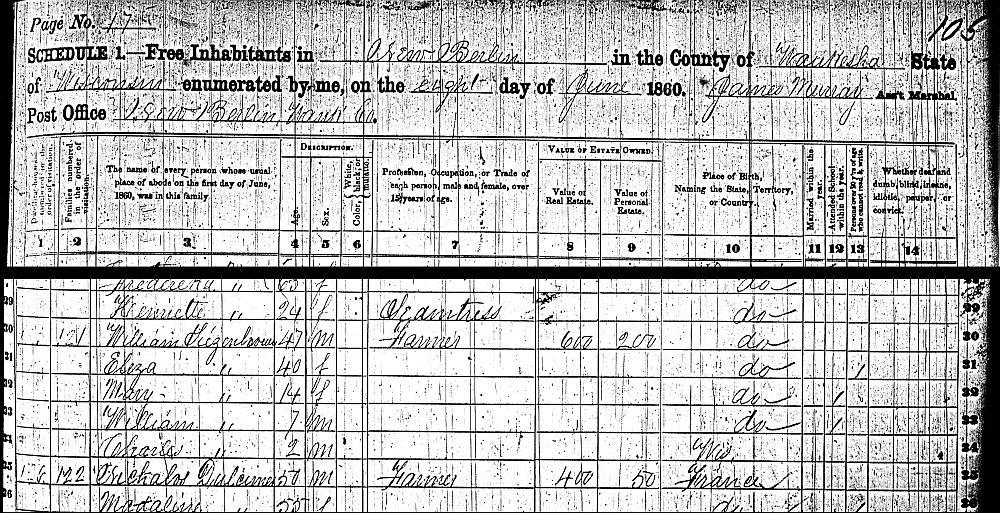 Page No. 17
105
SCHEDULE 1.—Free Inhabitants in New Berlin in the County of Waukesha State
of Wisconsin enumerated by me, on the eight day of June 1860. James Murray Ass't Marshal.
Post Office New Berlin, Co.
Dwelling-houses numbered in the order of visitation.
Families numbered in the order of visitation.
The name of every person whose usual place of abode on the first day of June, 1860, was in this family.
DESCRIPTION.
Age.
Sex.
Color, White, black, or mulatto.
Profession, Occupation, or Trade of each person, male and female, over 15 years of age.
VALUE OF ESTATE OWNED.
Value of Real Estate.
Value of Personal Estate.
Place of Birth, Naming the State, Territory, or Country.
Married within the year.
Attended School within the year.
Persons over 20 y'rs of age who cannot read & write.
Whether deaf and dumb, blind, insane, idiotic, pauper, or convict.
1 2 3 4 5 6 7 8 9 10 11 12 13 14
Frederena " 63 f do
29 Henriette " 24 f Seamstress do 29
30 121 William 47 m Farmer 600 200 do 30
31 Eliza " 40 f do / 31
32 Mary " 14 f do / 32
33 William " 7 m do / 33
34 Charles " 2 m Wis 34
35 122 Nicholas 50 m Farmer 400 50 France 35
36 Madaline " 55 f do 36